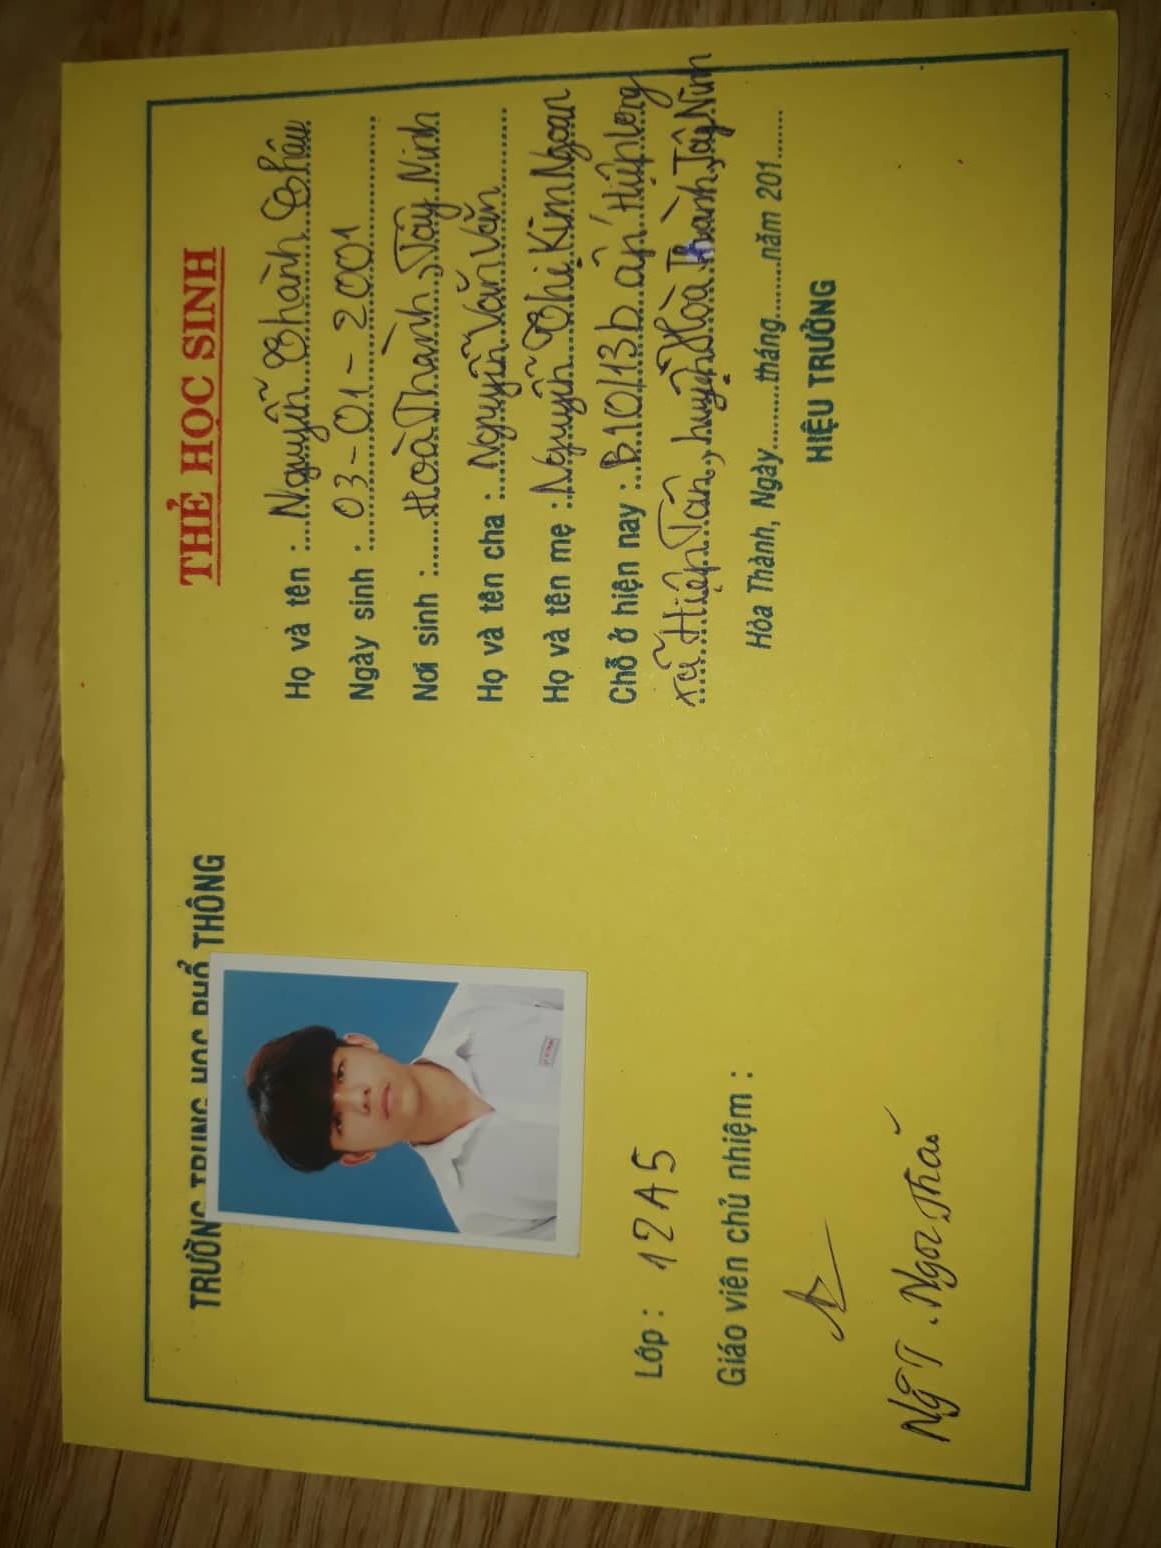 TRƯỜNG TRUNG HỌC PHỔ THÔNG
Lớp : 12A5
Giáo viên chủ nhiệm :
Ng T. Ngọc
THẺ HỌC SINH
Họ và tên : Nguyễn Thành Châu
Ngày sinh : 03-01-2001
Nơi sinh : Hoà Thành, Tây Ninh
Họ và tên cha : Nguyễn Văn Vẵn
Họ và tên mẹ : Nguyễn Thị Kim Ngoan
Chỗ ở hiện nay : B10/13b ấp Hiệp Long
xã Hiệp Tân, huyện Hòa Thành, Tây Ninh
Hòa Thành, Ngày.........tháng.........năm 201......
HIỆU TRƯỞNG